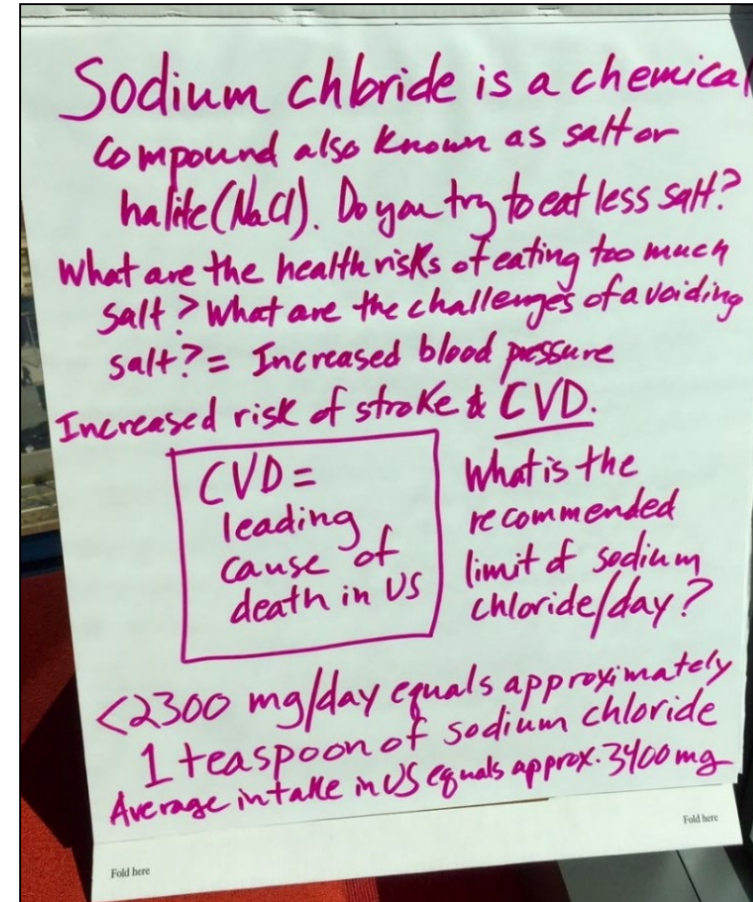 Sodium chloride is a chemical
compound also known as salt or
halite (NaCl). Do you try to eat less salt?
What are the health risks of eating too much
salt? What are the challenges of avoiding
salt? = Increased blood pressure
Increased risk of stroke & CVD.
CVD =
leading
cause of
death in US
What is the
recommended
limit of sodium
chloride/day?
<2300 mg/day equals approximately
1 teaspoon of sodium chloride
Average intake in US equals approx. 3400 mg
Fold here
Fold here